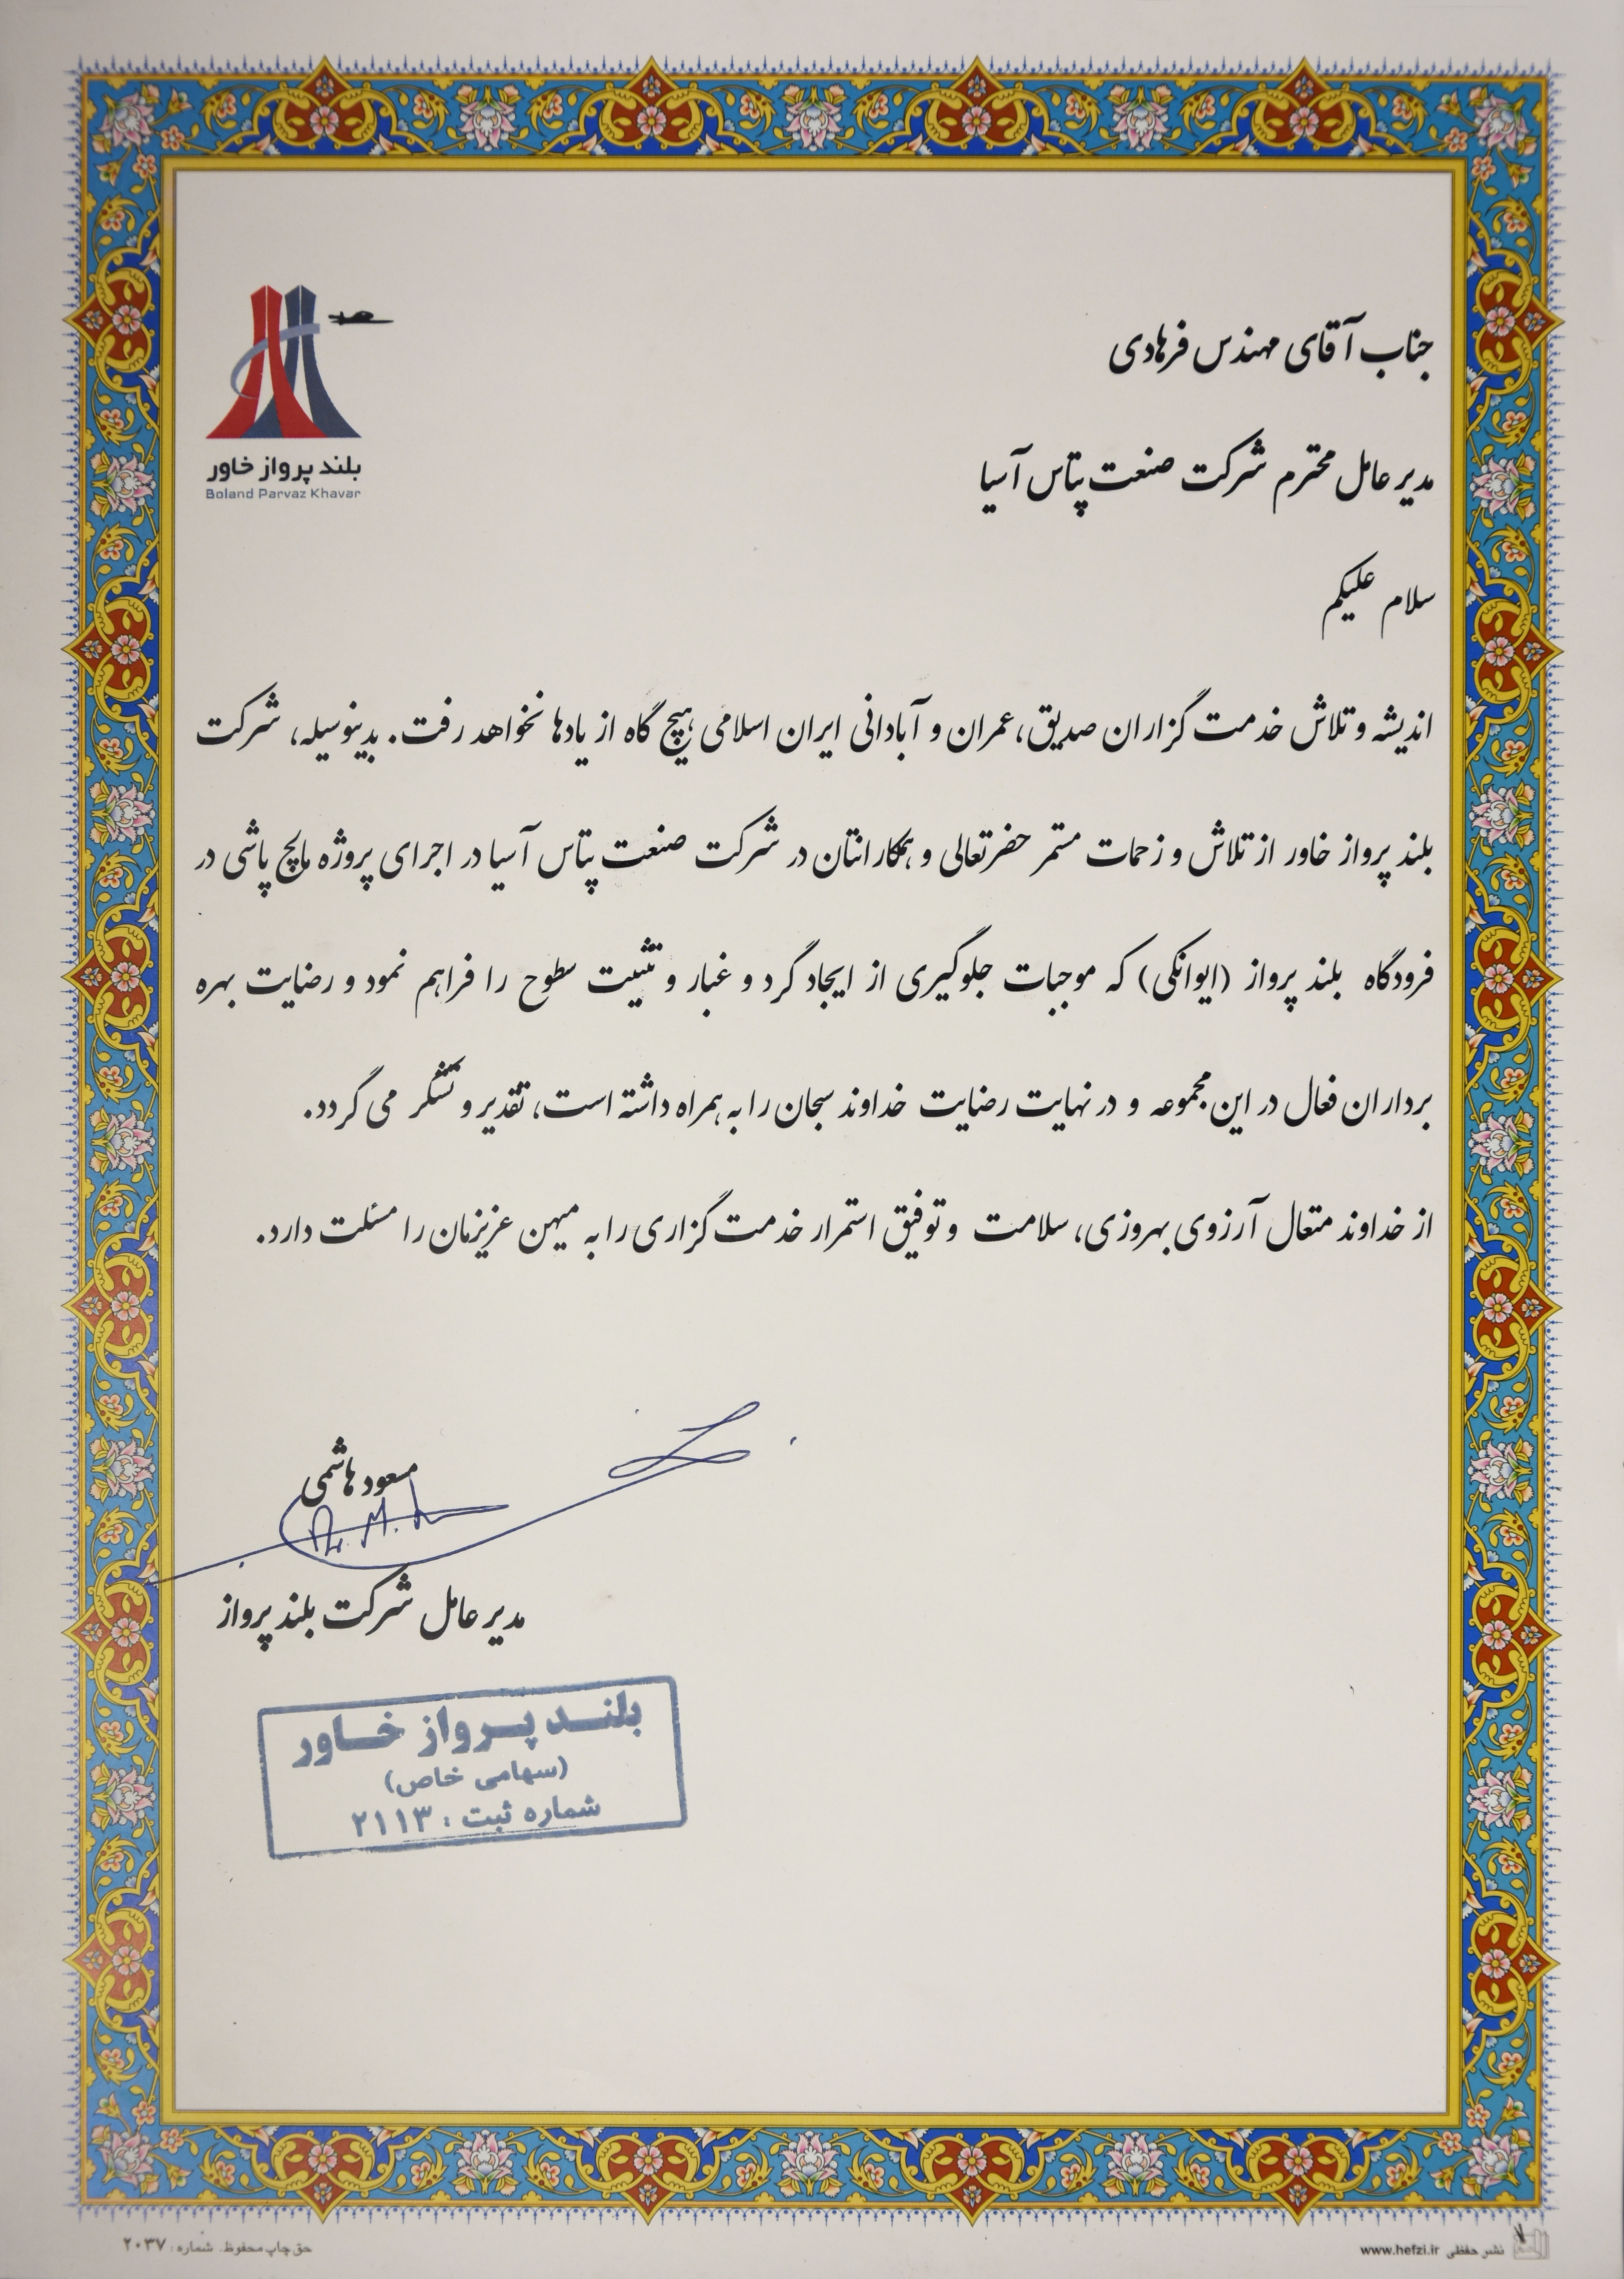 بلند پرواز خاور
Boland Parvaz Khavar
جناب آقای مهندس فرهادی
مدیر عامل محترم شرکت صنعت پتاس آسیا
سلام علیکم
اندیشه و تلاش خدمت گزاران صدیق، عمران و آبادانی ایران اسلامی هیچ گاه از یادها نخواهد رفت. بدینوسیله، شرکت
بلند پرواز خاور از تلاش و زحمات مستمر حضرتعالی و همکارانتان در شرکت صنعت پتاس آسیا در اجرای پروژه مالچ پاشی در
فرودگاه بلند پرواز (ایوانکی) که موجبات جلوگیری از ایجاد گرد و غبار و تثبیت سطوح را فراهم نمود و رضایت بهره
برداران فعال در این مجموعه و در نهایت رضایت خداوند سبحان را به همراه داشته است، تقدیر و تشکر می گردد.
از خداوند متعال آرزوی بهروزی، سلامت و توفیق استمرار خدمت گزاری را به میهن عزیزمان را مسئلت دارد.
مسعود هاشمی
مدیر عامل شرکت بلند پرواز
بلند پرواز خاور
(سهامی خاص)
شماره ثبت : ۲۱۱۳
نشر حفظی www.hefzi.ir
حق چاپ محفوظ. شماره: ۲۰۳۷